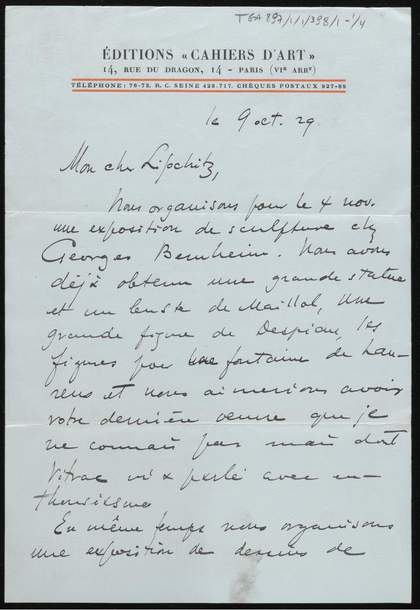 TGA 897/1/1/398/1-1/4
ÉDITIONS « CAHIERS D'ART »
14, RUE DU DRAGON, 14 - PARIS (VIe ARRt)
TÉLÉPHONE: 76-73. R. C. SEINE 428.717. CHÈQUES POSTAUX 927-89
le 9 oct. 29
Mon cher Lipchitz,
Nous organisons pour le 4 nov.
une exposition de sculpture chez
Georges Bernheim. Nous avons
déjà obtenu une grande statue
et un buste de Maillol, une
grande figure de Despiau, les
figures pour une fontaine de Lau-
rens et nous aimerions avoir
votre dernière oeuvre que je
ne connais pas mais dont
Vitrac m'a parlé avec en-
thousiasme
En même temps nous organisons
une exposition de dessins de